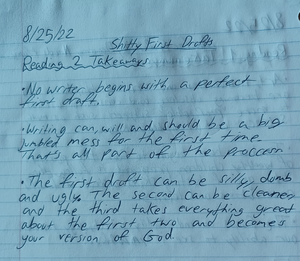 8/25/22
Shitty First Drafts
Reading 2 Takeaways
• No writer begins with a perfect
first draft.
• Writing can, will and, should be a big
jumbled mess for the first time.
That's all part of the proccess
• The first draft can be silly, dumb
and ugly. The second can be cleaner
and the third takes everything great
about the first two and becomes
your version of God.